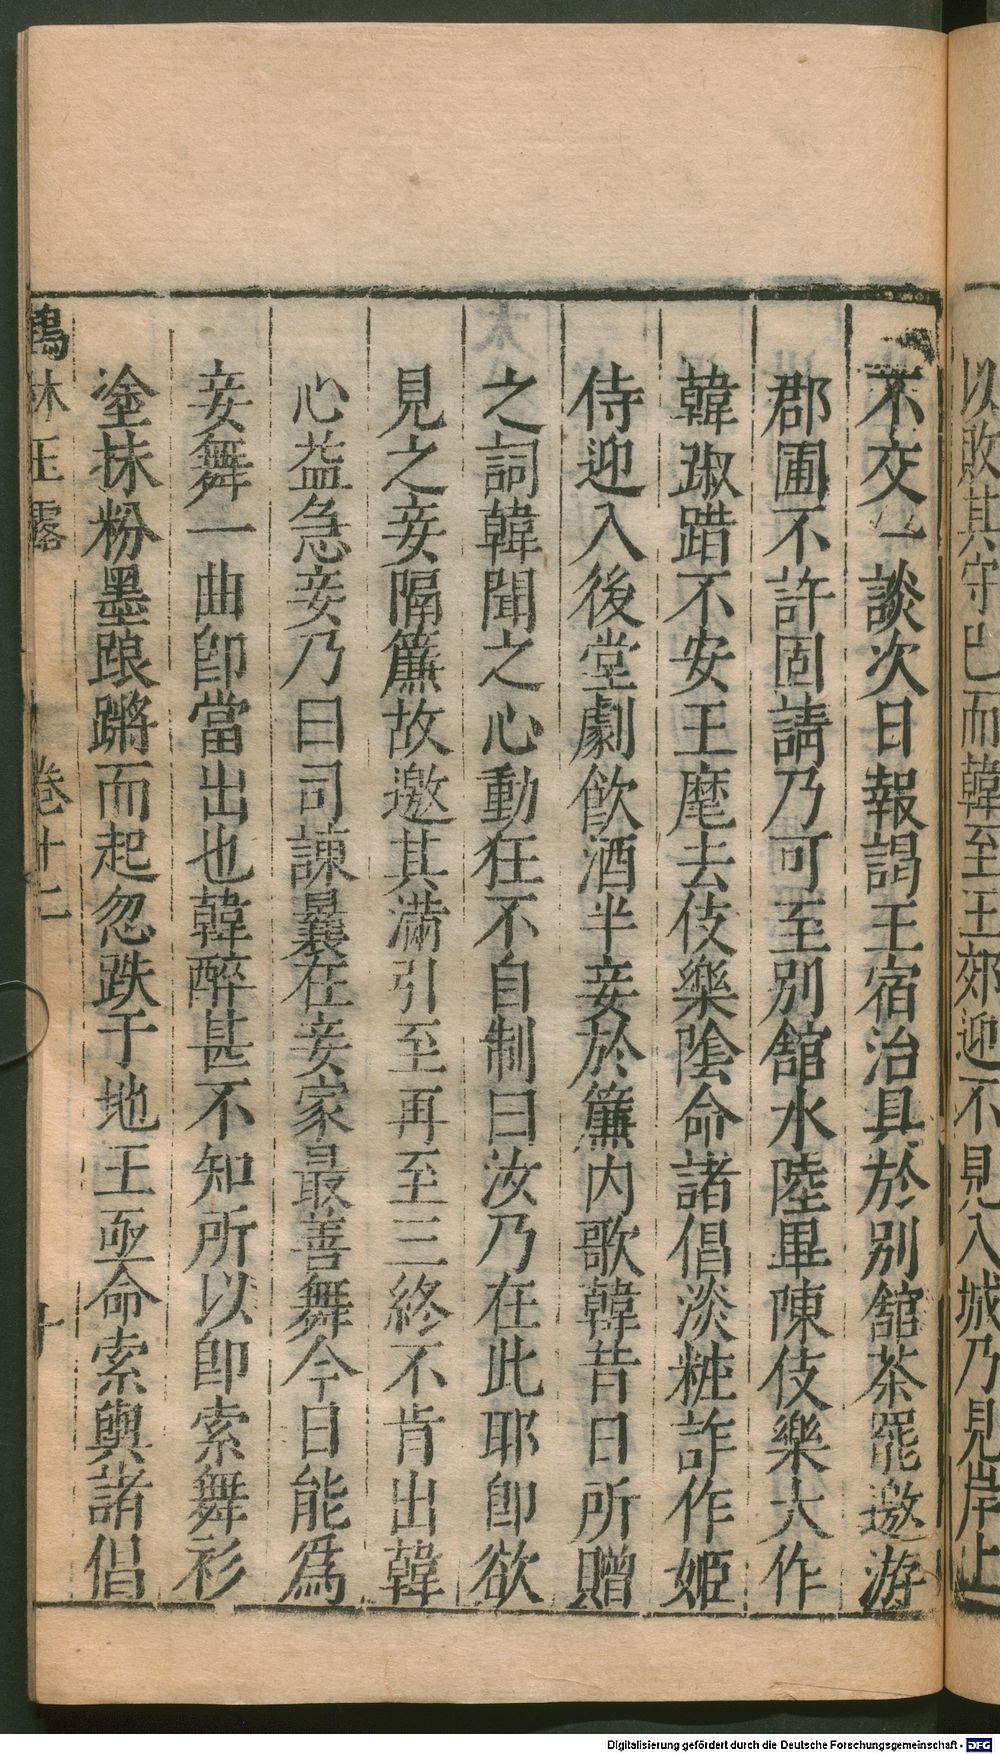 以敗其守已而韓至王郊迎不見入城乃見岸上
不交一談次日報謁王宿治具於别舘茶罷邀游
郡圃不許固請乃可至别舘水陸畢陳伎樂大作
韓踧踖不安王麾去伎樂隂命諸倡淡粧詐作姬
侍迎入後堂劇飮酒半妾於簾内歌韓昔日所贈
之詞韓聞之心動狂不自制曰汝乃在此耶卽欲
見之妾隔簾故邀其滿引至再至三終不肯出韓
心益急妾乃曰司諫曩在妾家最善舞今日能爲
妾舞一曲卽當出也韓醉甚不知所以卽索舞衫
塗抹粉墨踉蹡而起忽跌于地王亟命索輿諸倡
鶴林玉露 卷十二 十
Digitalisierung gefördert durch die Deutsche Forschungsgemeinschaft - DFG